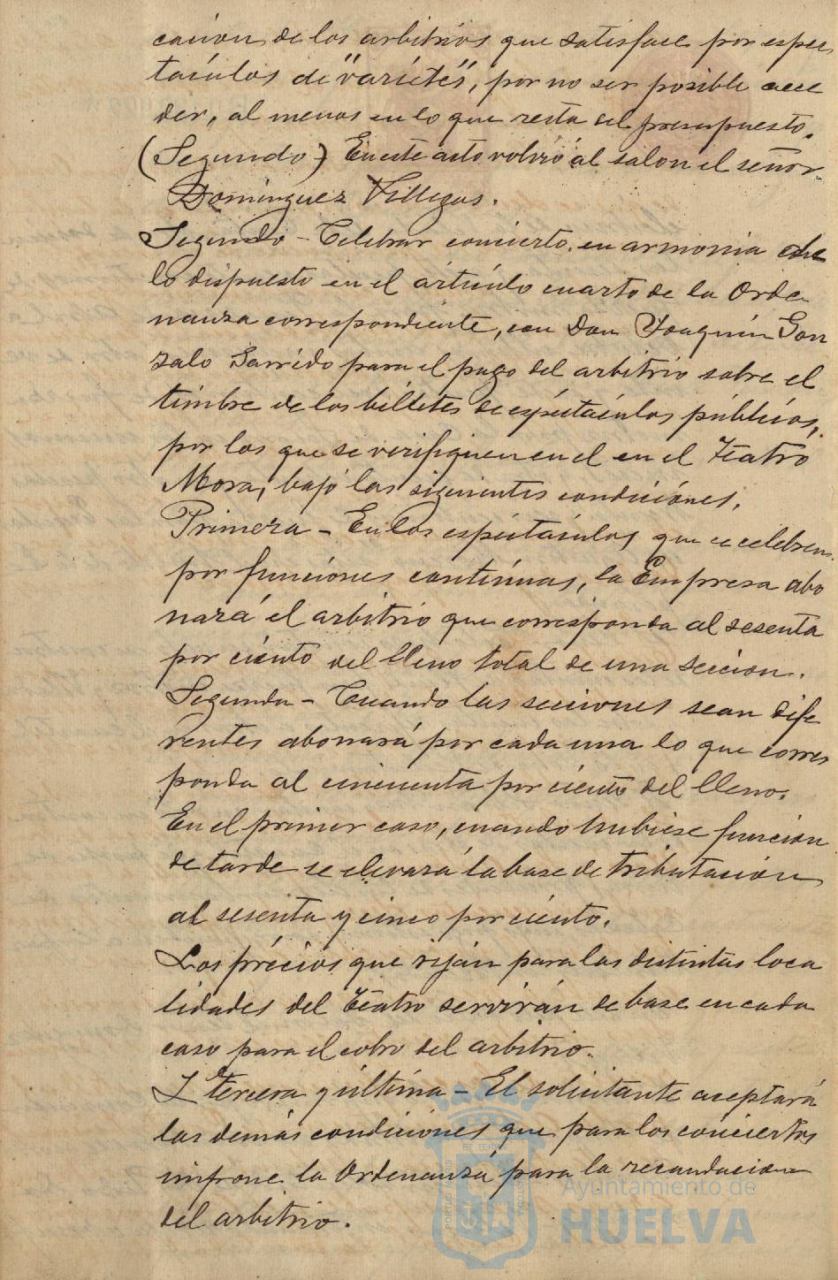 cacion de los arbitrios que satisface por espec
táculos de "varietés", por no ser posible acce
der, al menos en lo que resta del presupuesto.
(Segundo) En este acto volvió al salon el señor
Domínguez Villegas.
Segundo - Celebrar concierto, en armonia
lo dispuesto en el artículo cuarto de la Orde
nanza correspondiente, con Don Joaquín Gon
zalo Garrido para el pago del arbitrio sobre el
timbre de los billetes de espectáculos públicos,
por los que se verifiquen en el en el Teatro
Mora, bajo las siguientes condiciones.
Primera - En los espectáculos que se celebren
por funciones contínuas, la Empresa abo
nará el arbitrio que corresponda al sesenta
por ciento del lleno total de una seccion.
Segunda - Cuando las secciones sean dife
rentes abonará por cada una lo que corres
ponda al cincuenta por ciento del lleno.
En el primer caso, cuando hubiese funcion
de tarde se elevará la base de tributación
al sesenta y cinco por ciento.
Los précios que rijan para las distintas loca
lidades del Teatro servirán de base en cada
caso para el cobro del arbitrio.
Y tercera y última - El solicitante aceptará
las demás condiciones que para los conciertos
impone la Ordenanza para la recaudacion
del arbitrio.
Ayuntamiento de
HUELVA